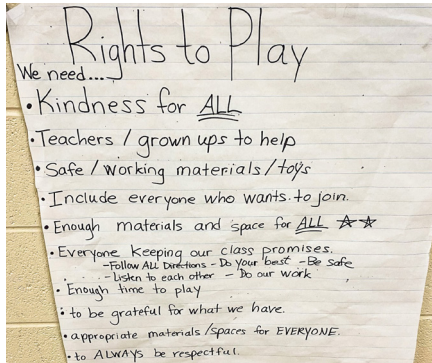 Rights to Play
We need....
• Kindness for ALL
• Teachers / grown ups to help
• Safe / working materials / toys
• Include everyone who wants to join.
• Enough materials and space for ALL ☆☆
• Everyone Keeping our class promises.
- Follow ALL Directions - Do your best - Be safe
- Listen to each other - Do our work
• Enough time to play
• to be grateful for what we have.
• appropriate materials/spaces for EVERYONE.
• to ALWAYS be respectful.